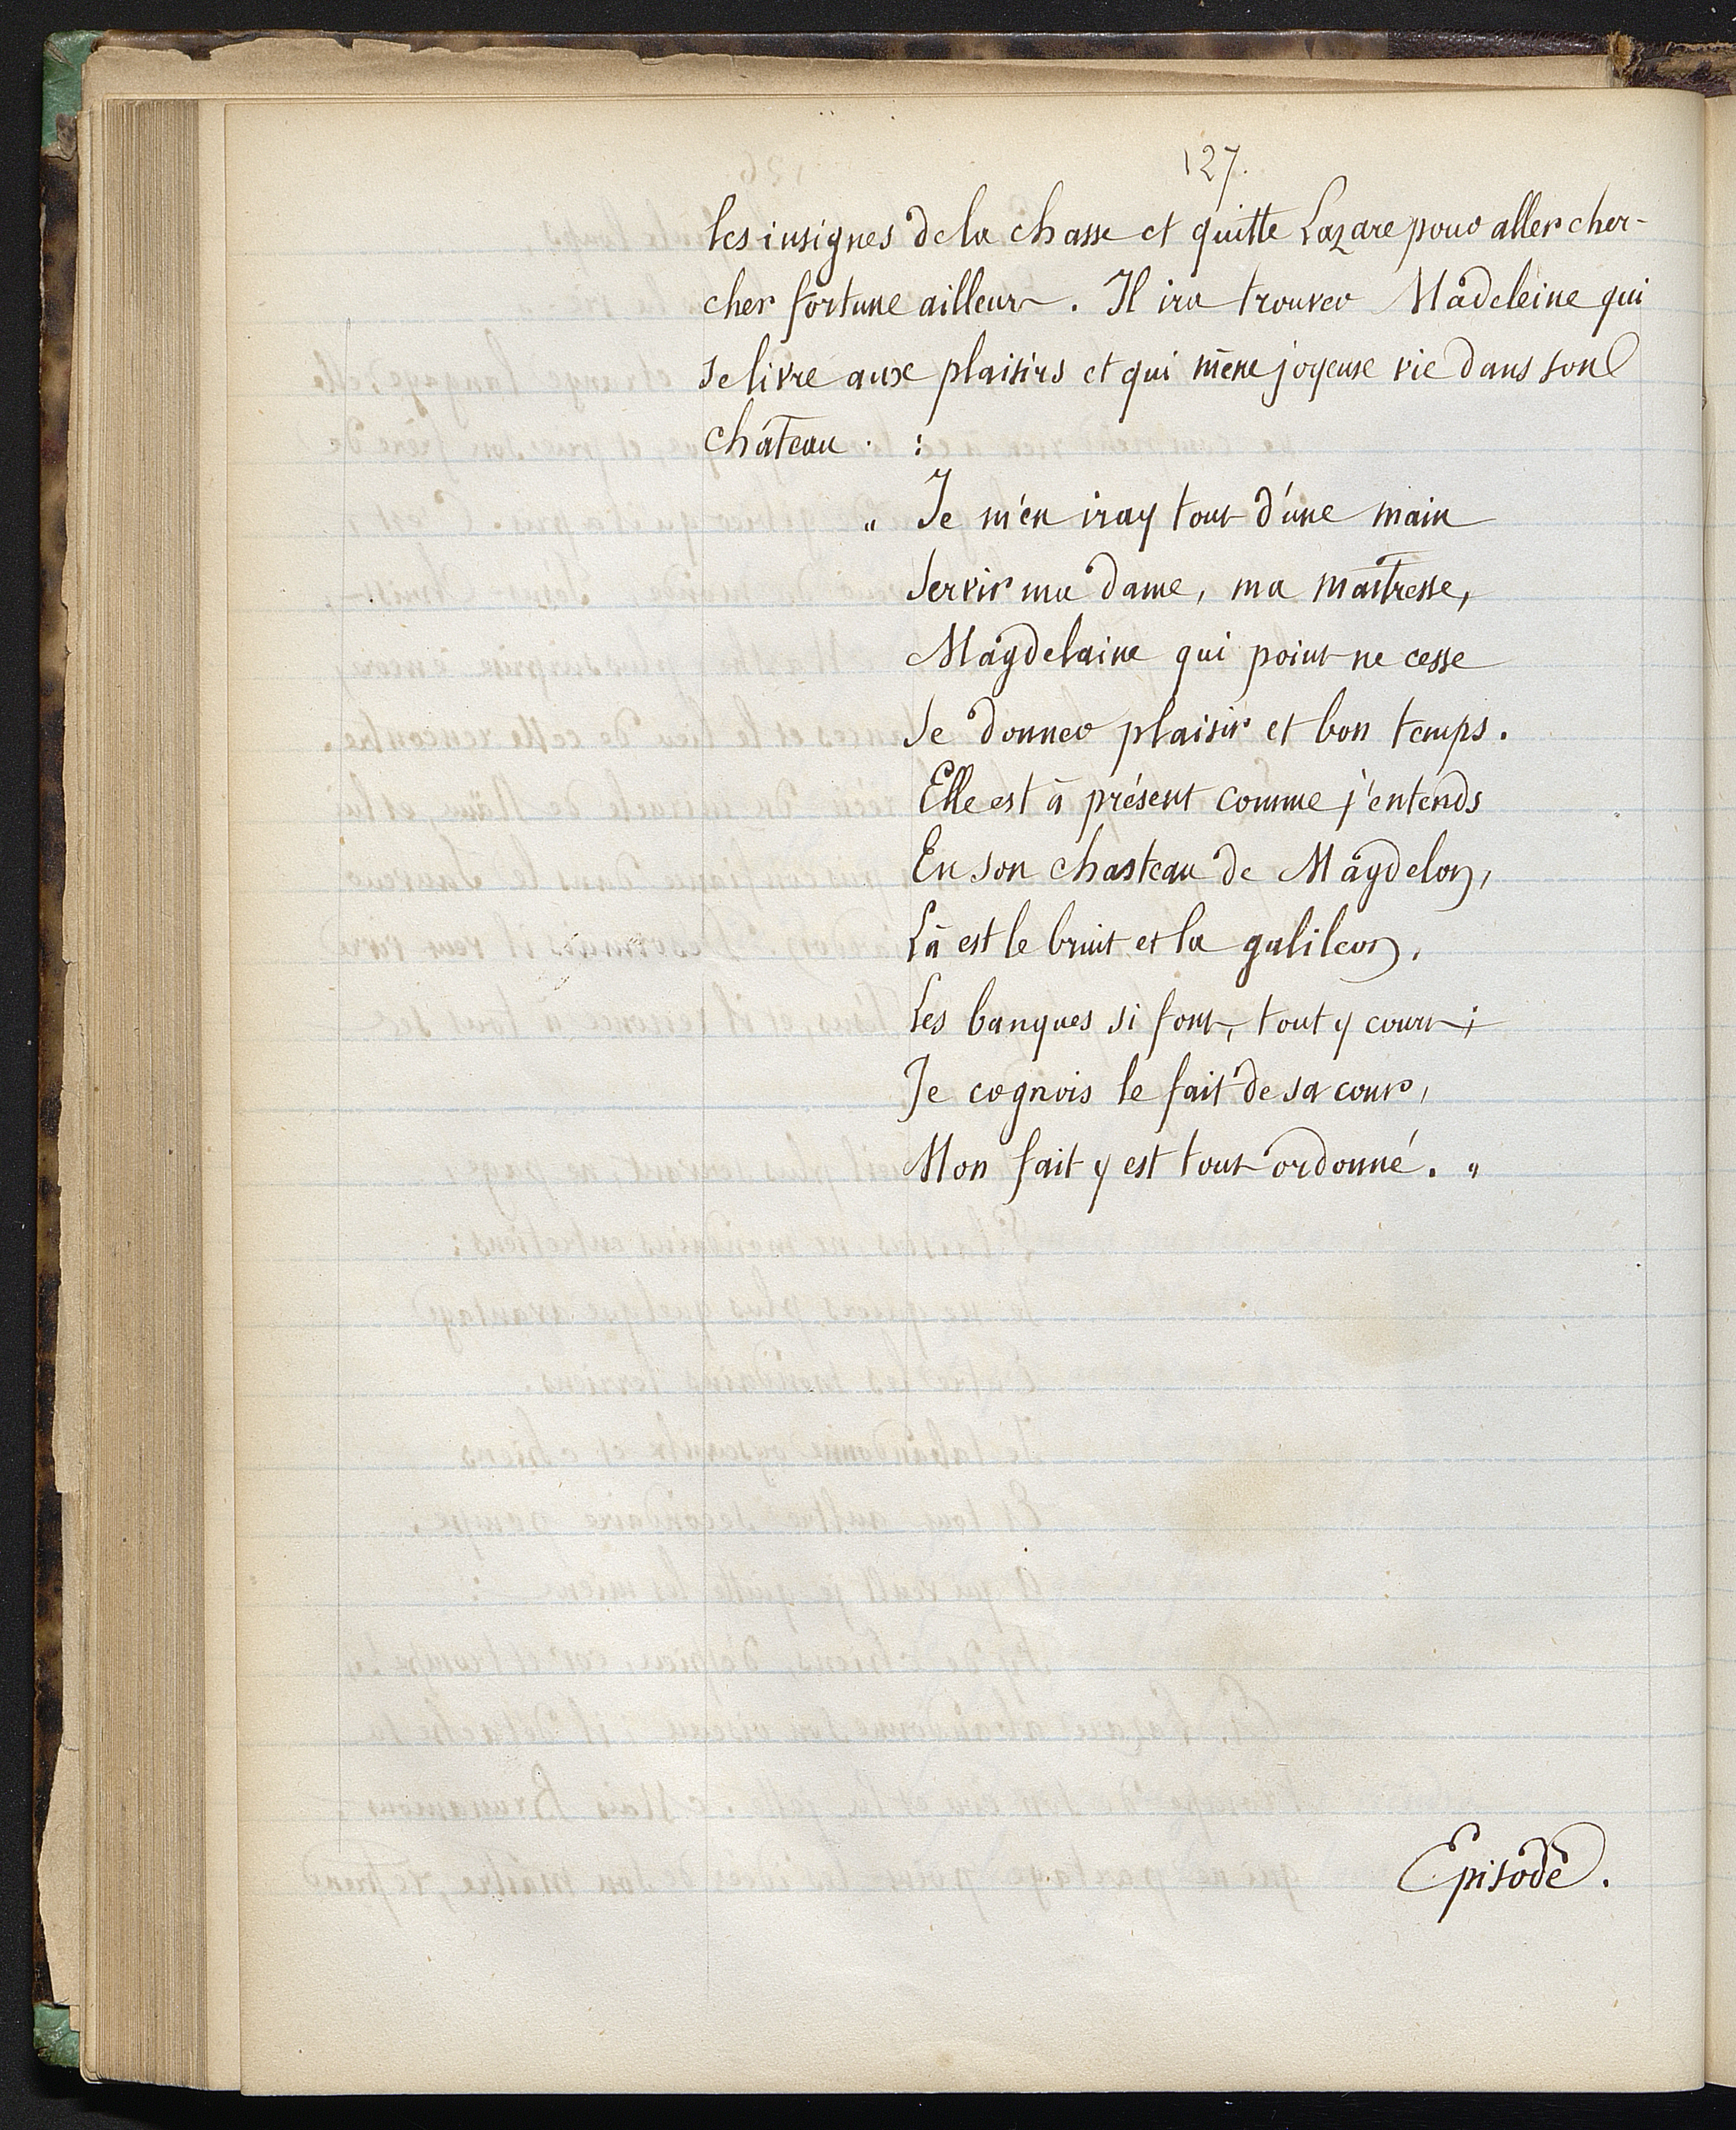 127.
les insignes de la chasse et quitte Lazare pour aller cher-
cher fortune ailleurs. Il ira trouver Madeleine qui
se livre aux plaisirs et qui mène joyeuse vie dans son
château . :
" Je m'en iray tout d'une main
Servir ma dame, ma maitresse,
Magdelaine qui point ne cesse
Se donner plaisir et bon temps.
Elle est à présent comme j'entends
En son chasteau de Magdelon,
Là est le bruit et la galileon,
Les banques si font, tout y court ;
Je cognois le fait de sa cour,
Mon fait y est tout ordonné. "
Episode.